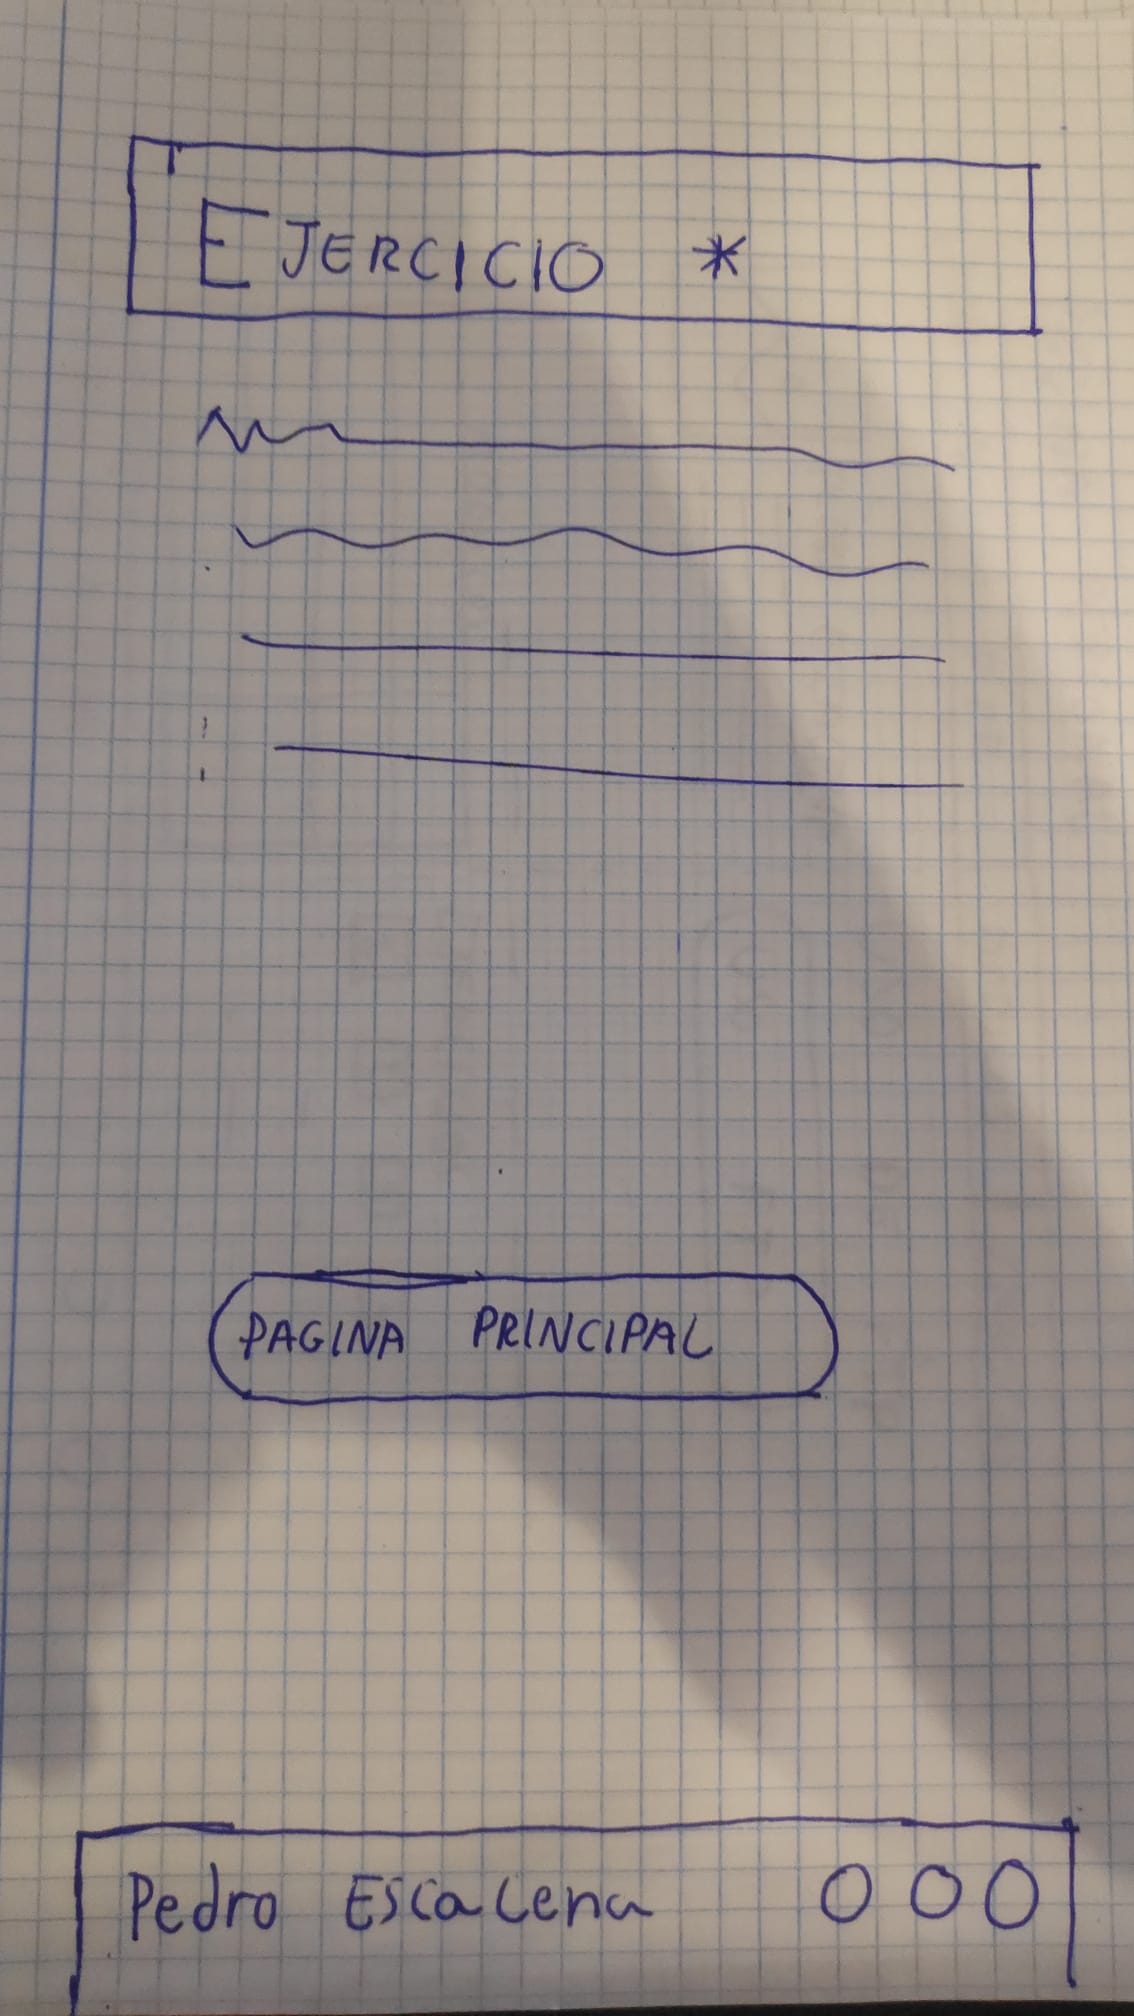 EJERCICIO *
PAGINA PRINCIPAL
Pedro Escalena